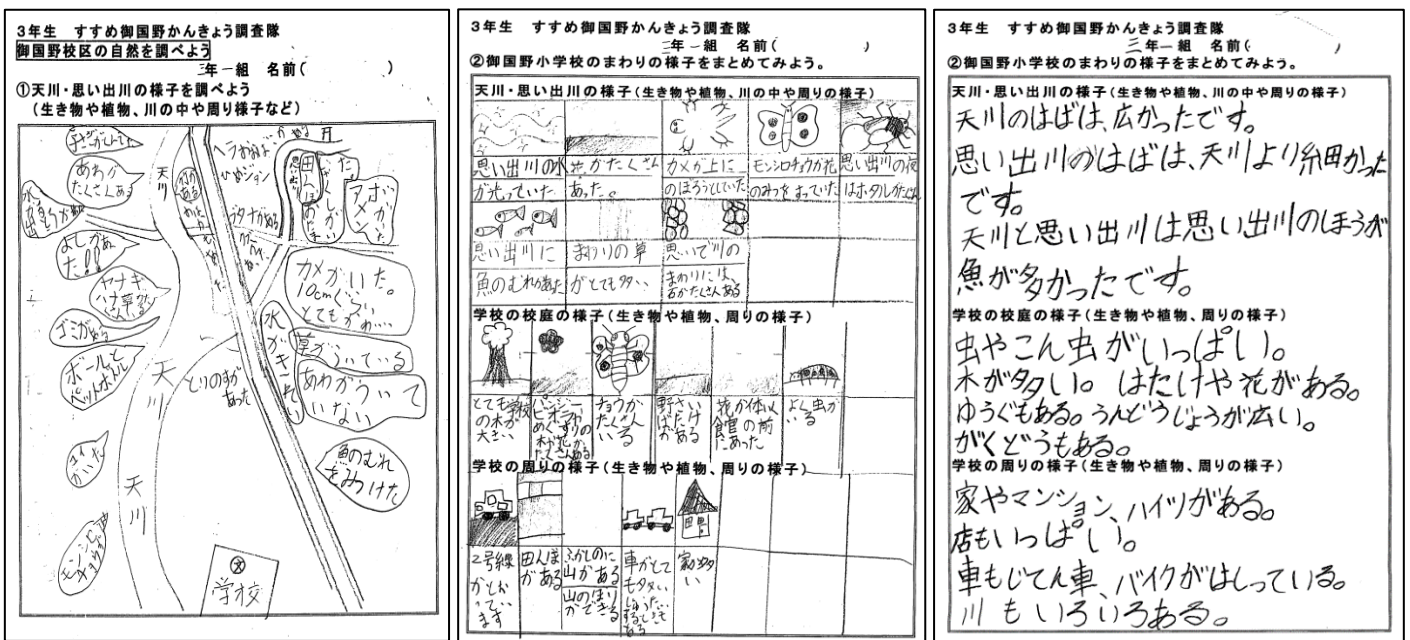 3年生 すすめ御国野かんきょう調査隊
御国野校区の自然を調べよう
三年一組 名前( )
①天川・思い出川の様子を調べよう
(生き物や植物、川の中や周り様子など)
あわが
たくさんある
よしがあっ
た!!
ゴミがある
ボールと
ペットボトル
天川
天
川
天
川
とりのすが
あった
カメがいた。
10cmぐらい
とてもかわ…
水がキれい
草がういている
あわがういて
いない
魚のむれ
をみつけた
学校
3年生 すすめ御国野かんきょう調査隊
三年一組 名前( )
②御国野小学校のまわりの様子をまとめてみよう。
天川・思い出川の様子(生き物や植物、川の中や周りの様子)
思い出川の水
が光っていた
花がたくさん
あった。
カメが上に
のぼろうとしていた
モンシロチョウが花
のみつをすっていた
思い出川の夜
はホタルがとぶ
思い出川に
魚のむれがあった
まわりの草
がとても多い
思いで川の
まわりには、
石がたくさんある
学校の校庭の様子(生き物や植物、周りの様子)
とても学校
の木が
大きい
パンジー
ビオラが
チョウが
たくさん
いる
野さい
ばたけ
がある
花が体いく
館の前
にあった
よく虫が
いる
学校の周りの様子(生き物や植物、周りの様子)
2号線
がとおっています
田んぼ
がある
山がある
山のぼり
ができる
車がとて
も多い
家が多
い
3年生 すすめ御国野かんきょう調査隊
三年一組 名前( )
②御国野小学校のまわりの様子をまとめてみよう。
天川・思い出川の様子(生き物や植物、川の中や周りの様子)
天川のはばは、広かったです。
思い出川のはばは、天川より細かった
です。
天川と思い出川は思い出川のほうが
魚が多かったです。
学校の校庭の様子(生き物や植物、周りの様子)
虫やこん虫がいっぱい。
木が多い。 はたけや花がある。
ゆうぐもある。うんどうじょうが広い。
がくどうもある。
学校の周りの様子(生き物や植物、周りの様子)
家やマンション、ハイツがある。
店もいっぱい。
車もじてん車、バイクがはしっている。
川もいろいろある。